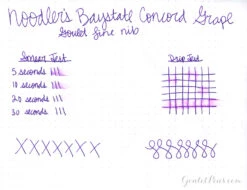 Noodler's Baystate Concord Grape
Gould fine nib
Smear Test
Drip Test
5 seconds
10 seconds
20 seconds
30 seconds
XXXXXXX
GouletPens.com